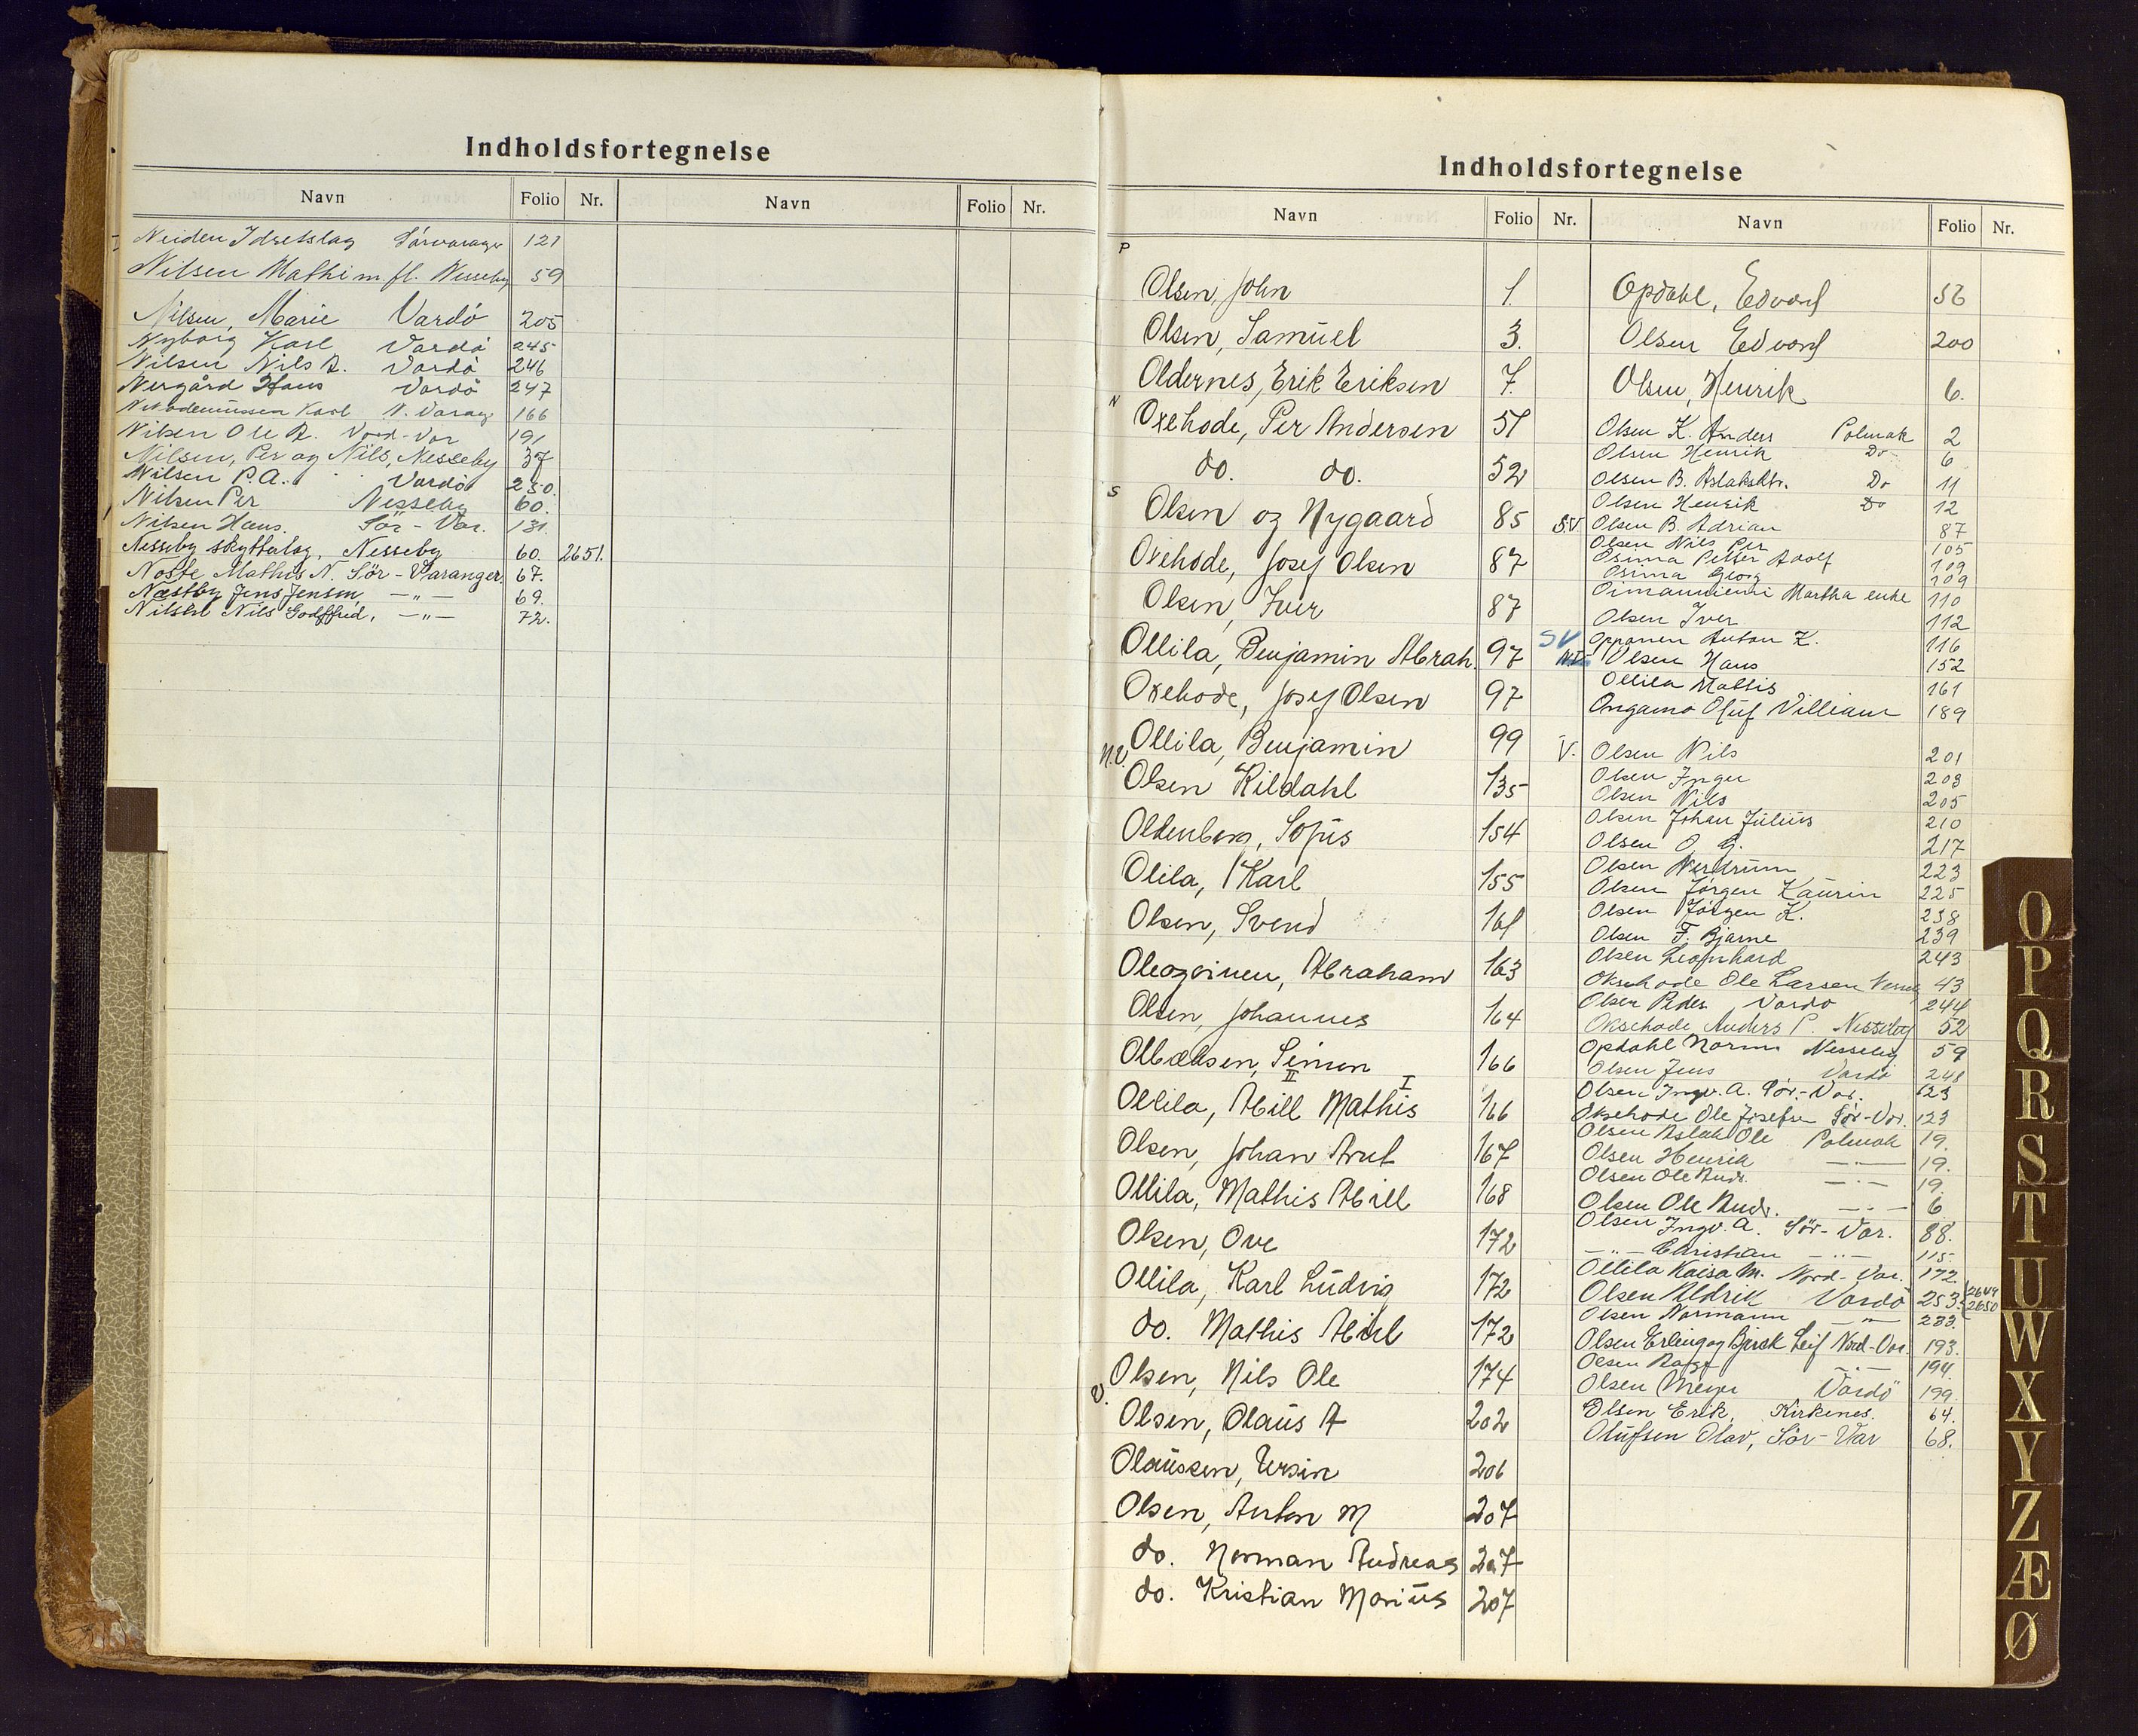 Indholdsfortegnelse
Navn Folio Nr. Navn Folio Nr.
Neiden Idretslag Sørvaranger 121
Nilsen Mathi m fl. Nesseby 59
Nilsen, Marie Vardö 205
Nyborg Karl Vardö 245
Nilsen Nils A. Vardö 246
Nergård Hans Vardö 247
Nikodemussen Karl N. Varang 166
Nilsen Ole A. Nord-Var 191
Nilsen, Per og Nils, Nesseby 37
Nilsen P.A. Vardö 250.
Nilsen Per Nesseby 60.
Nilsen Hans. Sör-Var. 131.
Nesseby skytterlag, Nesseby 60. 2651.
Noste Mathis N. Sör-Varanger 67.
Næstby Jens Jensen —"— 69.
Nilsen Nils Godtfred, —"— 72.
Indholdsfortegnelse
Navn Folio Nr. Navn Folio Nr.
P
Olsen, John 1.
Olsen, Samuel 3.
Oldernes, Erik Eriksen 7.
N
Oxehode, Per Andersen 51
do. do. 52
S
Olsen og Nygaard 85
Oxehode, Josef Olsen 87
Olsen, Iver 87
Ollila, Benjamin Abrah. 97
Oxehode, Josef Olsen 97
Ollila, Benjamin 99
N.V.
Olsen Kildahl 135
Oldenberg, Sofus 154
Olila, Karl 155
Olsen, Svend 161
Abraham 163
Olsen, Johannes 164
Simon 166
II I
Ollila, Abill Mathis 166
Olsen, Johan Arnt 167
Ollila, Mathis Abill 168
Olsen, Ove 172
Ollila, Karl Ludvig 172
do. Mathis Abill 172
Olsen, Nils Ole 174
V.
Olsen, Olaus A 202
Olaussen, Ursin 206
Olsen, Anton M 207
do. Norman Andreas 207
do. Kristian Marius 207
Opdahl, Edvard 56
Olsen Edvard 200
Olsen, Henrik 6.
Olsen K. Anders Polmak 2
Olsen Henrik Do 6
Olsen B. Aslakstr. Do 11
Olsen Henrik Do 12
S.V Olsen B. Adrian 87
Olsen Nils Per 105
Osima Petter Adolf 109
Osima Georg 109
Martha enke 110
Olsen Iver 112
SV Opponen Anton K. 116
N.V. Olsen Hans 152
Ollila Mattis 161
Ongamo Oluf Villiam 189
V. Olsen Nils 201
Olsen Inger 203
Olsen Nils 205
Olsen Johan Julius 210
Olsen O. G. 217
Olsen Nerdrum 223
Olsen Jörgen Kaurin 225
Olsen Jörgen K. 238
Olsen F. Bjarne 239
Olsen Leonhard 243
Oksehode Ole Larsen Nesseby 43
Olsen Peder Vardö 244
Oksehode Anders P. Nesseby 52
Opdahl Norm Nesseby 59
Olsen Jens Vardö 248
Olsen Ingv. A. Sör.-Var. 123
Oksehode Ole Josefsen Sör-Var. 123
Olsen Aslak Ole Polmak 19.
Olsen Henrik —"— 19.
Olsen Ole Andr. —"— 19.
Olsen Ole Andr. —"— 6
Olsen Ingv. A. Sör-Var. 88.
—"— Christian —"— 115.
Ollila Kaisa M. Nord-Var. 172.
Olsen Aldrik Vardö 253. 2649 2650
Olsen Normann —"— 233.
Olsen Erling og Bjerk Leif Nord-Var. 193.
Olsen Ragn —"— 194.
Olsen Meyer Vardö 199.
Olsen Erik, Kirkenes. 64.
Olufsen Olav, Sör-Var 68.
O
P
Q
R
S
T
U
W
X
Y
Z
Æ
Ø